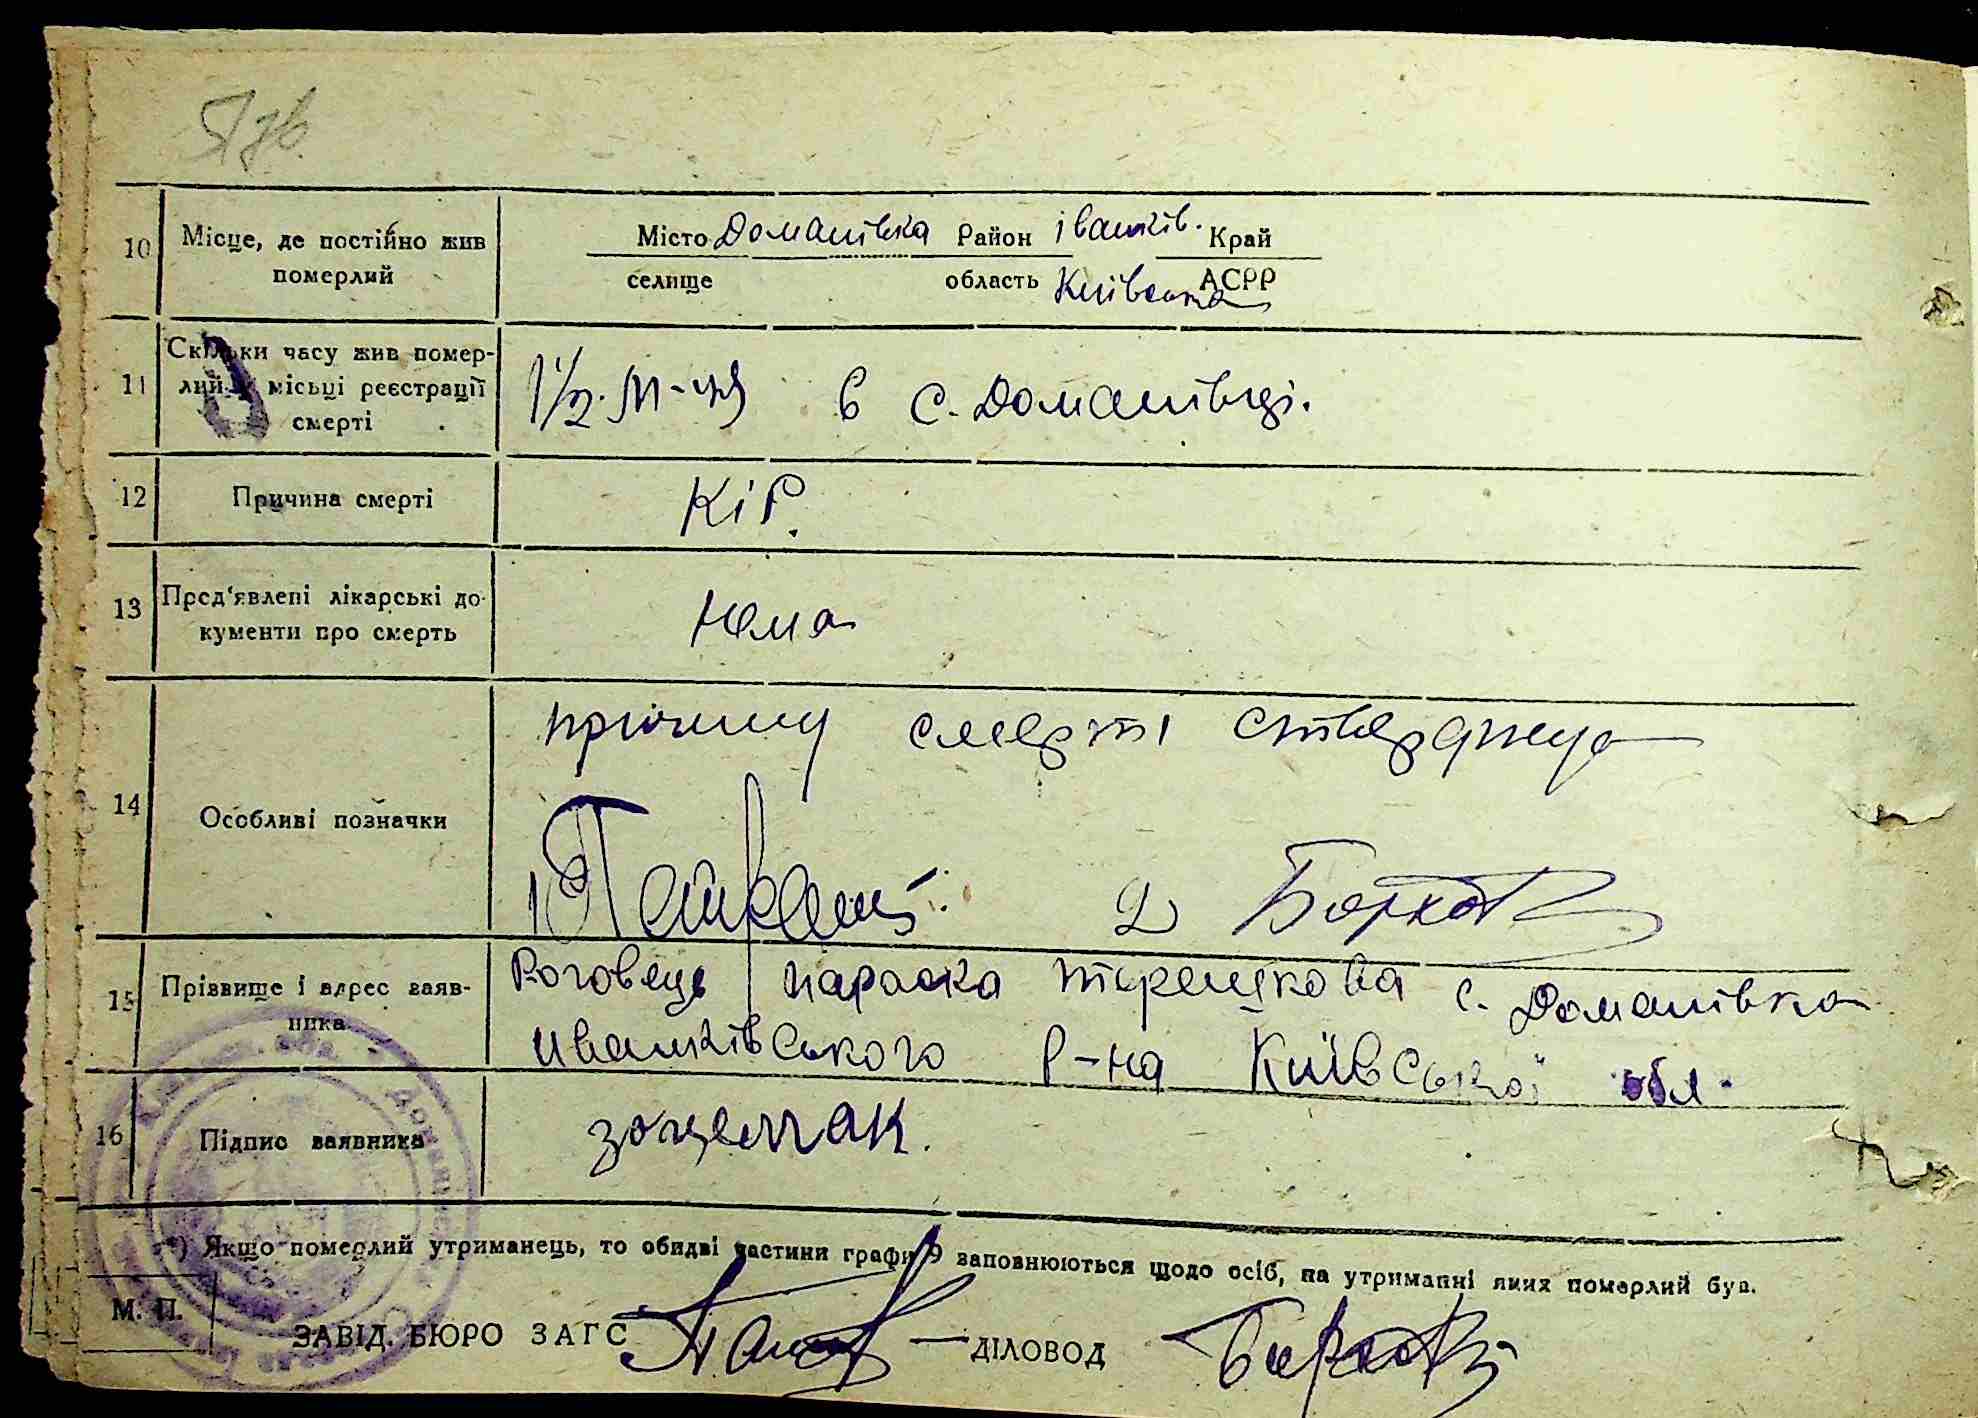 10 Місце, де постійно жив померлий
Місто Доманівка Район іванків. Край
селище область Київська АСРР
11 Скільки часу жив померлий в місьці реєстрації смерті
1 1/2 м-ця в с. Доманівці.
12 Причина смерті
Кір.
13 Пред'явлені лікарські документи про смерть
Нема
14 Особливі позначки
причину смерті стверджуе
1) 2)
15 Прізвище і адрес заявника
Роговець параска с. Доманівка
иванківського р-на Київської обл.
16 Підпис заявника
*) Якщо померлий утриманець, то обидві частини графи 9 заповнюються щодо осіб, на утриманні яких померлий був.
М. П.
ЗАВІД. БЮРО ЗАГС ДІЛОВОД